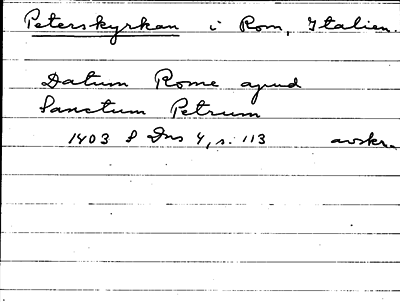 Peterskyrkan i Rom, Italien.
Datum Rome apud
Sanctum Petrum
1403 S Dns 4, s. 113 avskr.